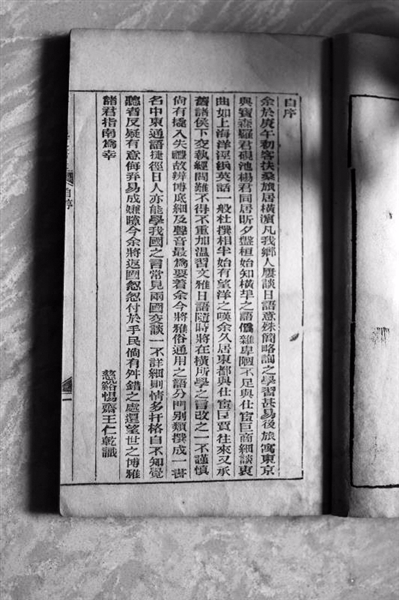 自序
余於庚午初客扶桑旅居橫濱凡我鄉人屢談日語意殊簡略詢之學習甚易後旅寓東京
與寶森羅君硯池楊君同居昕夕盤桓始知橫埠之語儳雜卑陋不足與仕宦巨商細談衷
曲如上海洋涇浜英話一般杜撰相半始有望洋之嘆余久居東都與仕宦巨賈往來又承
舊諸侯下交執經問難不得不重加溫習文雅日語隨時將在橫所學之言改之一不謹慎
尚有攙入失禮故辨博底細及聲音最爲要着余今將雅俗通用之語分門別類撰成一書
名中東通語捷徑日人亦能學我國之言常見兩國交談一不詳細則情多扞格自不知覺
聽者反疑有意侮弄易成嫌隙今余將返國怱怱付於手民倘有舛錯之處還望世之博雅
諸君指南爲幸
慈谿惕齋王仁乾識
自序